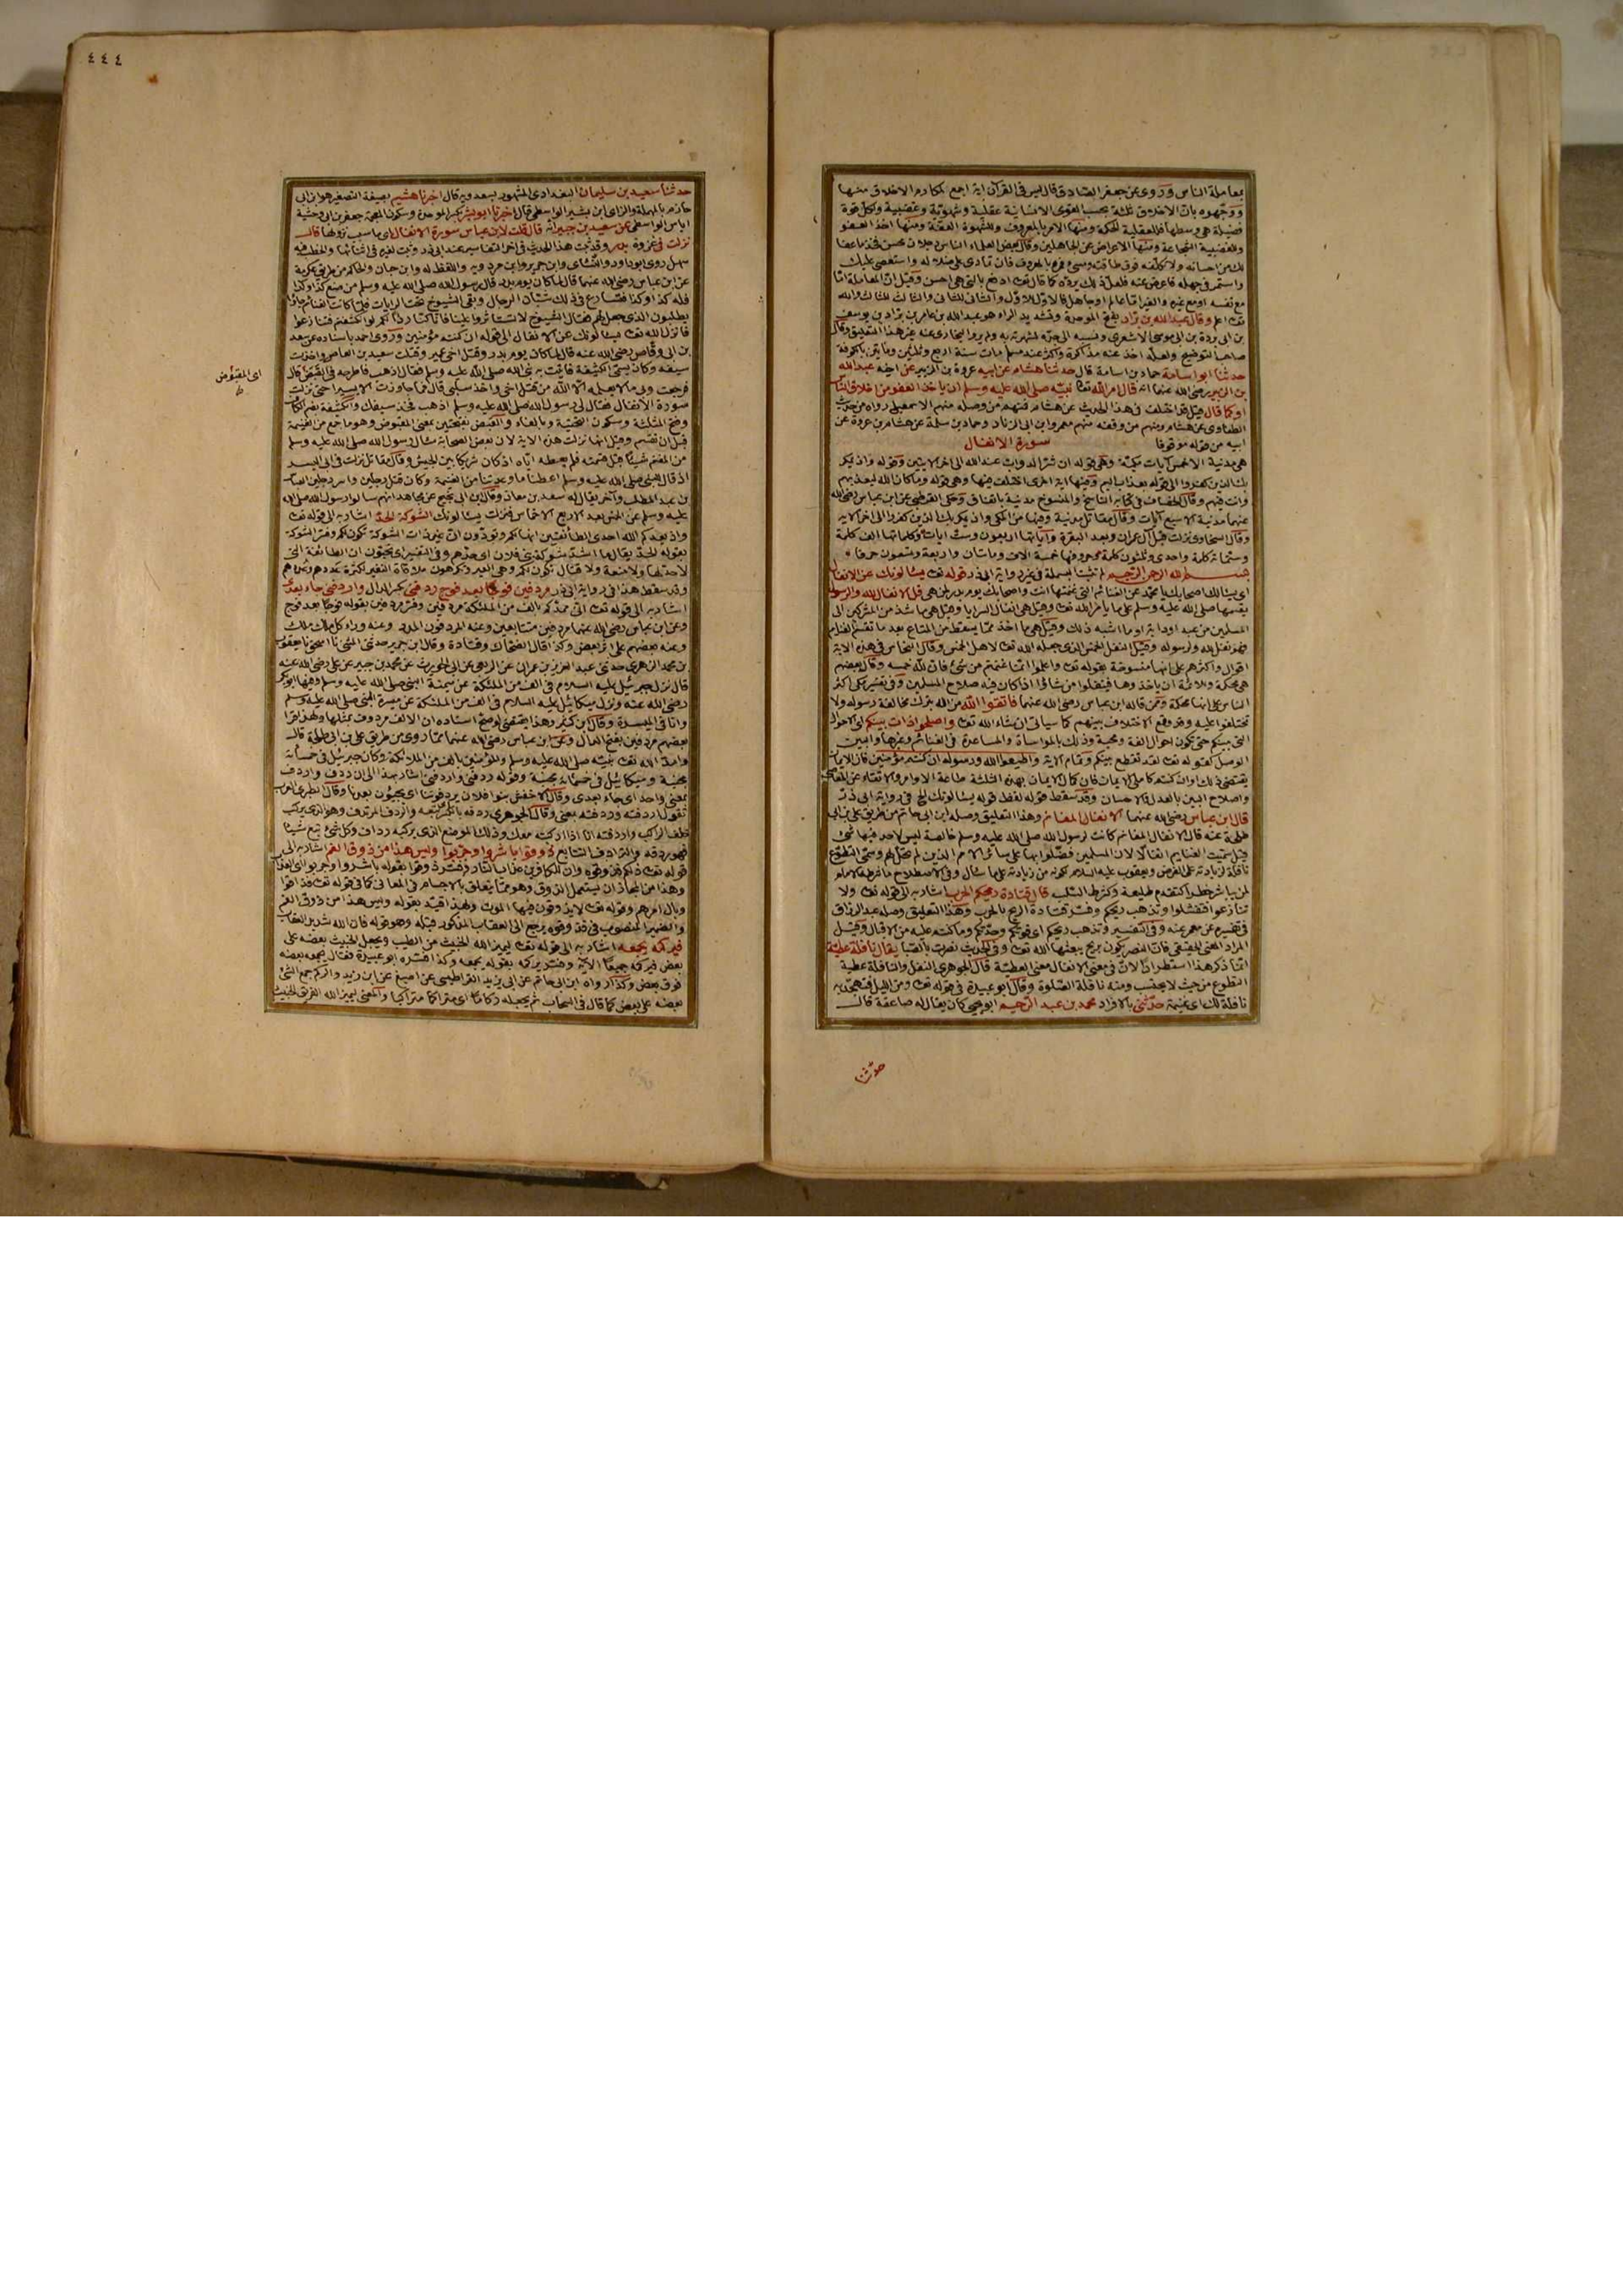 بمعاملة الناس وروى عن جعفر الصادق قال ليس في القرآن اية اجمع لمكارم الاخلاق منها
ووجهوه بان الاخلاق ثلثة بحسب القوى الانسانية عقلية وشهوية وغضبية ولكل قوة
فضيلة هي وسطها فللعقلية الحكمة ومنها الامر بالمعروف وللشهوة العفة ومنها اخذ العفو
وللغضبية الشجاعة ومنها الاعراض عن الجاهلين وقال بعض العلماء الناس رجلان محسن فخذ ما عفا
لك من احسانه ولا تكلفه فوق طاقته ومسيء فمره بالمعروف فان تمادى على ضلاله واستعصى عليك
واستمر في جهله فاعرض عنه فلعل ذلك يرده كما قال تعـ ادفع بالتي هي احسن وقيل ان المعاملة اما
مع نفسه او مع غيره والغير اما عالم او جاهل فالاول للاول والثاني للثاني والثالث للثالث والله
تعـ اعلم وقال عبد الله بن براد بفتح الموحدة وتشديد الراء هو عبد الله بن عامر بن براد بن يوسف
بن ابي بردة بن ابي موسى الاشعري ونسبه الى جده لشهرته به ولم يرو البخاري عنه غير هذا التعليق وقال
صاحب التوضيح ولعله اخذ عنه مذاكرة واكثر عنه مسلم مات سنة اربع وثلثين ومأتين بالكوفة
حدثنا ابو اسامة حماد بن اسامة قال حدثنا هشام عن ابيه عروة بن الزبير عن اخيه عبد الله
بن الزبير رضي الله عنهما انه قال امر الله تعالى نبيه صلى الله عليه وسلم ان ياخذ العفو من اخلاق الناس
او كما قال قيل قد اختلف في هذا الحديث عن هشام فمنهم من وصله منهم الاسمعيلي رواه من حديث
الطفاوي عن هشام ومنهم من وقفه منهم معمر وابن ابي الزناد وحماد بن سلمة عن هشام بن عروة عن
ابيه من قوله موقوفا سورة الانفال
هي مدنية الا خمس آيات مكية وهي قوله ان شر الدواب عند الله الى اخر الايتين وقوله واذ يمكر
بك الذين كفروا الى قوله بعذاب اليم وفيها اية اخرى اختلف فيها وهي قوله وما كان الله ليعذبهم
وانت فيهم وقال الحصاف في كتابه الناسخ والمنسوخ مدنية باتفاق وحكى القرطبي عن ابن عباس رضي الله
عنهما مدنية الا سبع آيات وقال مقاتل مدنية وفيها من المكي واذ يمكر بك الذين كفروا الى اخر الاية
وقال السخاوي نزلت قبل آل عمران وبعد البقرة وآياتها اربعون وست ايات وكلماتها الف كلمة
وستمائة كلمة واحدى وثلثون كلمة وحروفها خمسة الاف ومائتان واربعة وتسعون حرفا
بسم الله الرحمن الرحيم لم تثبت البسملة في غير رواية ابي ذر قوله تعـ يسئالونك عن الانفال
اي يسئالك اصحابك يا محمد عن الغنائم التي غنمتها انت واصحابك يوم بدر لمن هي قل الانفال لله والرسول
يقسمها صلى الله عليه وسلم على ما يامر الله تعـ وقيل هي انفال السرايا وقيل هي ما شذ من المشركين الى
المسلمين من عبد او دابة او ما اشبه ذلك وقيل هي ما اخذ مما يسقط من المتاع بعد ما تقسم الغنايم
فهو نفل لله ولرسوله وقيل النفل الخمس الذي جعله الله تعـ لاهل الخمس وقال النحاس في هذه الاية
اقوال واكثرهم على انها منسوخة بقوله تعـ واعلموا انما غنمتم من شيء فان لله خمسه وقال بعضهم
هي محكمة وللائمة ان ياخذوها فينفلوا من شاؤا اذا كان فيه صلاح المسلمين وفي تفسير مكي اكثر
الناس على انها محكمة وممن قاله ابن عباس رضي الله عنهما فاتقوا الله من الله بترك مخالفة رسوله ولا
تختلفوا عليه وقد وقع الاختلاف بينهم كما سياتي ان شاء الله تعـ واصلحوا ذات بينكم اي الاحوال
التي بينكم حتى يكون احوال الفة ومحبة وذلك بالمواساة والمساعدة في الغنائم وغيرها والبين
الوصل كقوله تعـ لقد تقطع بينكم وتمام الاية واطيعوا الله ورسوله ان كنتم مؤمنين فان الايمان
يقتضي ذلك وان كنتم كاملي الايمان فان كمال الايمان بهذه الثلثة طاعة الاوامر والاتقاء عن المعاصي
واصلاح البين بالعدل والاحسان وقد سقط قوله لفظ قوله يسئالونك الخ في رواية ابي ذر
قال ابن عباس رضي الله عنهما الانفال المغانم وهذا التعليق وصله ابن ابي حاتم من طريق علي بن ابي
طلحة عنه قال الانفال المغانم كانت لرسول الله صلى الله عليه وسلم خالصة ليس لاحد فيها شيء
قيل سميت الغنايم انفالا لان المسلمين فضلوا بها على سائر الامم الذين لم تحل لهم وسمي التطوع
نافلة لزيادته على الفرض ويعقوب عليه السلام لكونه من زيادته على ما سال وفي الاصطلاح ما شرطه الامام
لمن يباشر خطرا كتقدم طليعة وكشرط السلب قال قتادة ريحكم الحرب اشار به الى قوله تعـ ولا
تنازعوا فتفشلوا وتذهب ريحكم وفسر قتادة الريح بالحرب وهذا التعليق وصله عبد الرزاق
في تفسيره عن معمر عنه وفي التفسير وتذهب ريحكم اي قوتكم وحدتكم وما كنتم عليه من الاقبال وقيل
المراد المعنى الحقيقي فان النصر يكون بريح يبعثها الله تعـ وفي الحديث نصرت بالصبا يقال نافلة عطية
انما ذكر هذا استطرادا لان في معنى الانفال معنى العطية قال الجوهري النفل والنافلة عطية
التطوع من حيث لا يجب ومنه نافلة الصلوة وقال ابو عبيدة في قوله تعـ ومن الليل فتهجد به
نافلة لك اي غنيمة حدثني بالافراد محمد بن عبد الرحيم ابو يحيى كان يقال له صاعقة قال
حدثنا
٤٤٤
حدثنا سعيد بن سليمان البغدادي المشهور بسعدويه قال اخبرنا هشيم بصيغة التصغير هو ابن ابي
حازم بالمهملة والزاي ابن بشير الواسطي قال اخبرنا ابو بشر بكسر الموحدة وسكون المعجمة جعفر بن ابي وحشية
اياس الواسطي عن سعيد بن جبير انه قال قلت لابن عباس سورة الانفال اي ما سبب نزولها قال
نزلت في غزوة بدر وقد ثبت هذا الحديث في اخر التفاسير عند ابي ذر وثبت لغيره في اثنائها والخطب فيه
سهل روى ابو داود والنسائي وابن جرير وابن مردويه واللفظ له وابن حبان والحاكم من طريق عكرمة
عن ابن عباس رضي الله عنهما قال لما كان يوم بدر قال رسول الله صلى الله عليه وسلم من صنع كذا وكذا
فله كذا وكذا فتسارع في ذلك شبان الرجال وبقي الشيوخ تحت الرايات فلما كانت الغنائم جاؤا
يطلبون الذي جعل لهم فقال الشيوخ لا تستاثروا علينا فانا كنا ردأ لكم لو انكشفتم فتنازعوا
فانزل الله تعـ يسئالونك عن الانفال الى قوله ان كنتم مؤمنين وروى احمد باسناده عن سعد
بن ابي وقاص رضي الله عنه قال لما كان يوم بدر وقتل اخي عمير وقتلت سعيد بن العاص واخذت
سيفه وكان يسمى الكثيفة فاتيت به نبي الله صلى الله عليه وسلم فقال اذهب فاطرحه في القبض قال
فرجعت وبي ما لا يعلمه الا الله من قتل اخي واخذ سلبي قال فما جاوزت الا يسيرا حتى نزلت
سورة الانفال فقال لي رسول الله صلى الله عليه وسلم اذهب فخذ سيفك والكثيفة بفتح الكاف
وفتح المثلثة وسكون التحتية وبالفاء والقبض بفتحتين بمعنى المقبوض وهو ما جمع من الغنيمة
قبل ان تقسم وقيل انها نزلت هذه الاية لان بعض الصحابة سال رسول الله صلى الله عليه وسلم
من المغنم شيئا قبل قسمته فلم يعطه اياه اذ كان شركا بين الجيش وقال مقاتل نزلت في ابي اليسر
اذ قال للنبي صلى الله عليه وسلم اعطنا ما وعدتنا من الغنيمة وكان قتل رجلين واسر رجلين العباس
بن عبد المطلب وآخر يقال له سعد بن معاذ وقال ابن ابي نجيح عن مجاهد انهم سالوا رسول الله صلى الله
عليه وسلم عن الخمس بعد الاربع الاخماس فنزلت يسئالونك الشوكة الحد اشار به الى قوله تعـ
واذ يعدكم الله احدى الطائفتين انها لكم وتودون ان غير ذات الشوكة تكون لكم وفسر الشوكة
بقوله الحد يقال ما اشد شوكة بني فلان اي حدهم وفي التفسير اي تحبون ان الطائفة التي
لا حد لها ولا منعة ولا قتال تكون لكم وهي العير وتكرهون ملاقاة النفير لكثرة عددهم وعددهم
وقد سقط هذا في رواية ابي ذر مردفين فوجا بعد فوج ردفني بكسر الدال واردفني جاء بعدي
اشار به الى قوله تعـ اني ممدكم بالف من الملئكة مردفين وفسر مردفين بقوله فوجا بعد فوج
وعن ابن عباس رضي الله عنهما مردفين متتابعين وعنه المردفون المدد وعنه وراء كل ملك ملك
وعنه بعضهم على اثر بعض وكذا قال الضحاك وقتادة وقال ابن جرير حدثني المثنى نا اسحق نا يعقوب
بن محمد الزهري حدثني عبد العزيز بن عمران عن الربعي عن ابي الحويرث عن محمد بن جبير عن علي رضي الله عنه
قال نزل جبرئيل عليه السلام في الف من الملئكة عن ميمنة النبي صلى الله عليه وسلم وفيها ابو بكر
رضي الله عنه ونزل ميكائيل عليه السلام في الف من الملئكة عن ميسرة النبي صلى الله عليه وسلم
وانا في الميسرة وقال ابن كثير وهذا يقتضي لو صح اسناده ان الالف مردوف بمثلها ولهذا قرا
بعضهم مردفين بفتح الدال وعن ابن عباس رضي الله عنهما مما روى من طريق علي بن ابي طلحة قال
وامد الله تعـ نبيه صلى الله عليه وسلم والمؤمنين بالف من الملائكة وكان جبرئيل في خمسمائة
مجنبة وميكائيل في خمسمائة مجنبة وقوله ردفني واردفني اشار بهذا الى ان ردف واردف
بمعنى واحد اي جاء بعدي وقال الاخفش بنو فلان يردفوننا اي يجيئون بعدنا وقال الطبري العرب
تقول اردفته وردفته بمعنى وقال الجوهري ردفه بالكسر تبعه والردف المرتدف وهو الذي يركب
خلف الراكب واردفته انا اذا اركبته معك وذلك الموضع الذي يركبه رداف وكل شيء تبع شيئا
فهو ردفه والترادف التتابع ذوقوا باشروا وجربوا وليس هذا من ذوق الفم اشار به الى
قوله تعـ ذلكم فذوقوه وان للكافرين عذاب النار وفسر ذوقوا بقوله باشروا وجربوا اي العذاب
وهذا من المجاز ان يستعمل الذوق وهو مما يتعلق بالاجسام في المعاني كما في قوله تعـ فذاقوا
وبال امرهم وقوله تعـ لا يذوقون فيها الموت ولهذا قيده بقوله وليس هذا من ذوق الفم
والضمير المنصوب في فذوقوه يرجع الى العقاب المذكور قبله وهو قوله فان الله شديد العقاب
فيركمه يجمعه اشار به الى قوله تعـ ليميز الله الخبيث من الطيب ويجعل الخبيث بعضه على
بعض فيركمه جميعا الاية وفسر يركمه بقوله يجمعه وكذا فسره ابو عبيدة فقال يجمعه بعضه
فوق بعض وكذا رواه ابن ابي حاتم عن ابي يزيد القراطيسي عن اصبغ عن ابن زيد والركم جمع الشيء
بعضه على بعض كما قال في السحاب ثم يجعله ركاما اي متراكما متراكبا والمعنى ليميز الله الفريق الخبيث
اي المقبوض